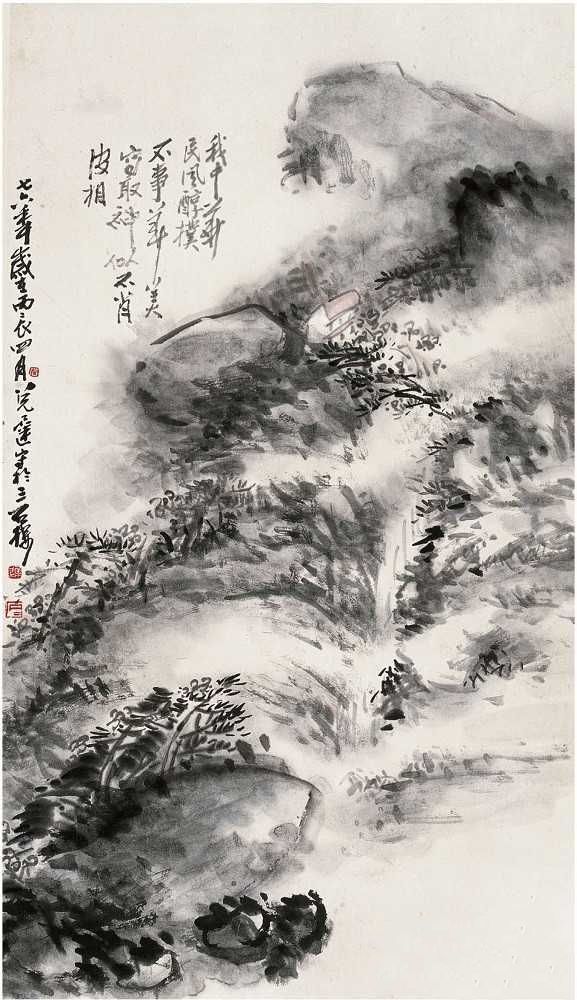 我中華
民風醇樸
不事華美
寫取神似不肖
皮相
七六年歲在丙辰四月於三石樓